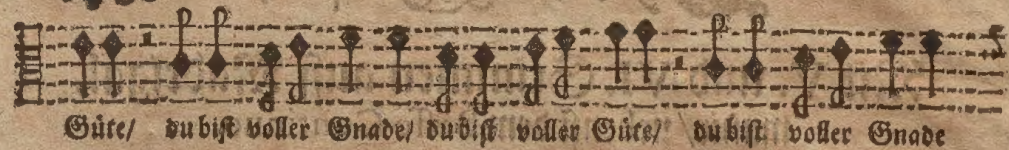 Güte/ du bist voller Gnade/ du bist voller Güte/ du bist voller Gnade